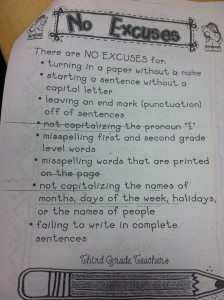 No Excuses
There are NO EXCUSES for:
• turning in a paper without a name
• starting a sentence without a
capital letter
• leaving an end mark (punctuation)
off of sentences
• not capitalizing the pronoun "I"
• misspelling first and second grade
level words
• misspelling words that are printed
on the page
• not capitalizing the names of
months, days of the week, holidays,
or the names of people
• failing to write in complete
sentences
Third Grade Teachers